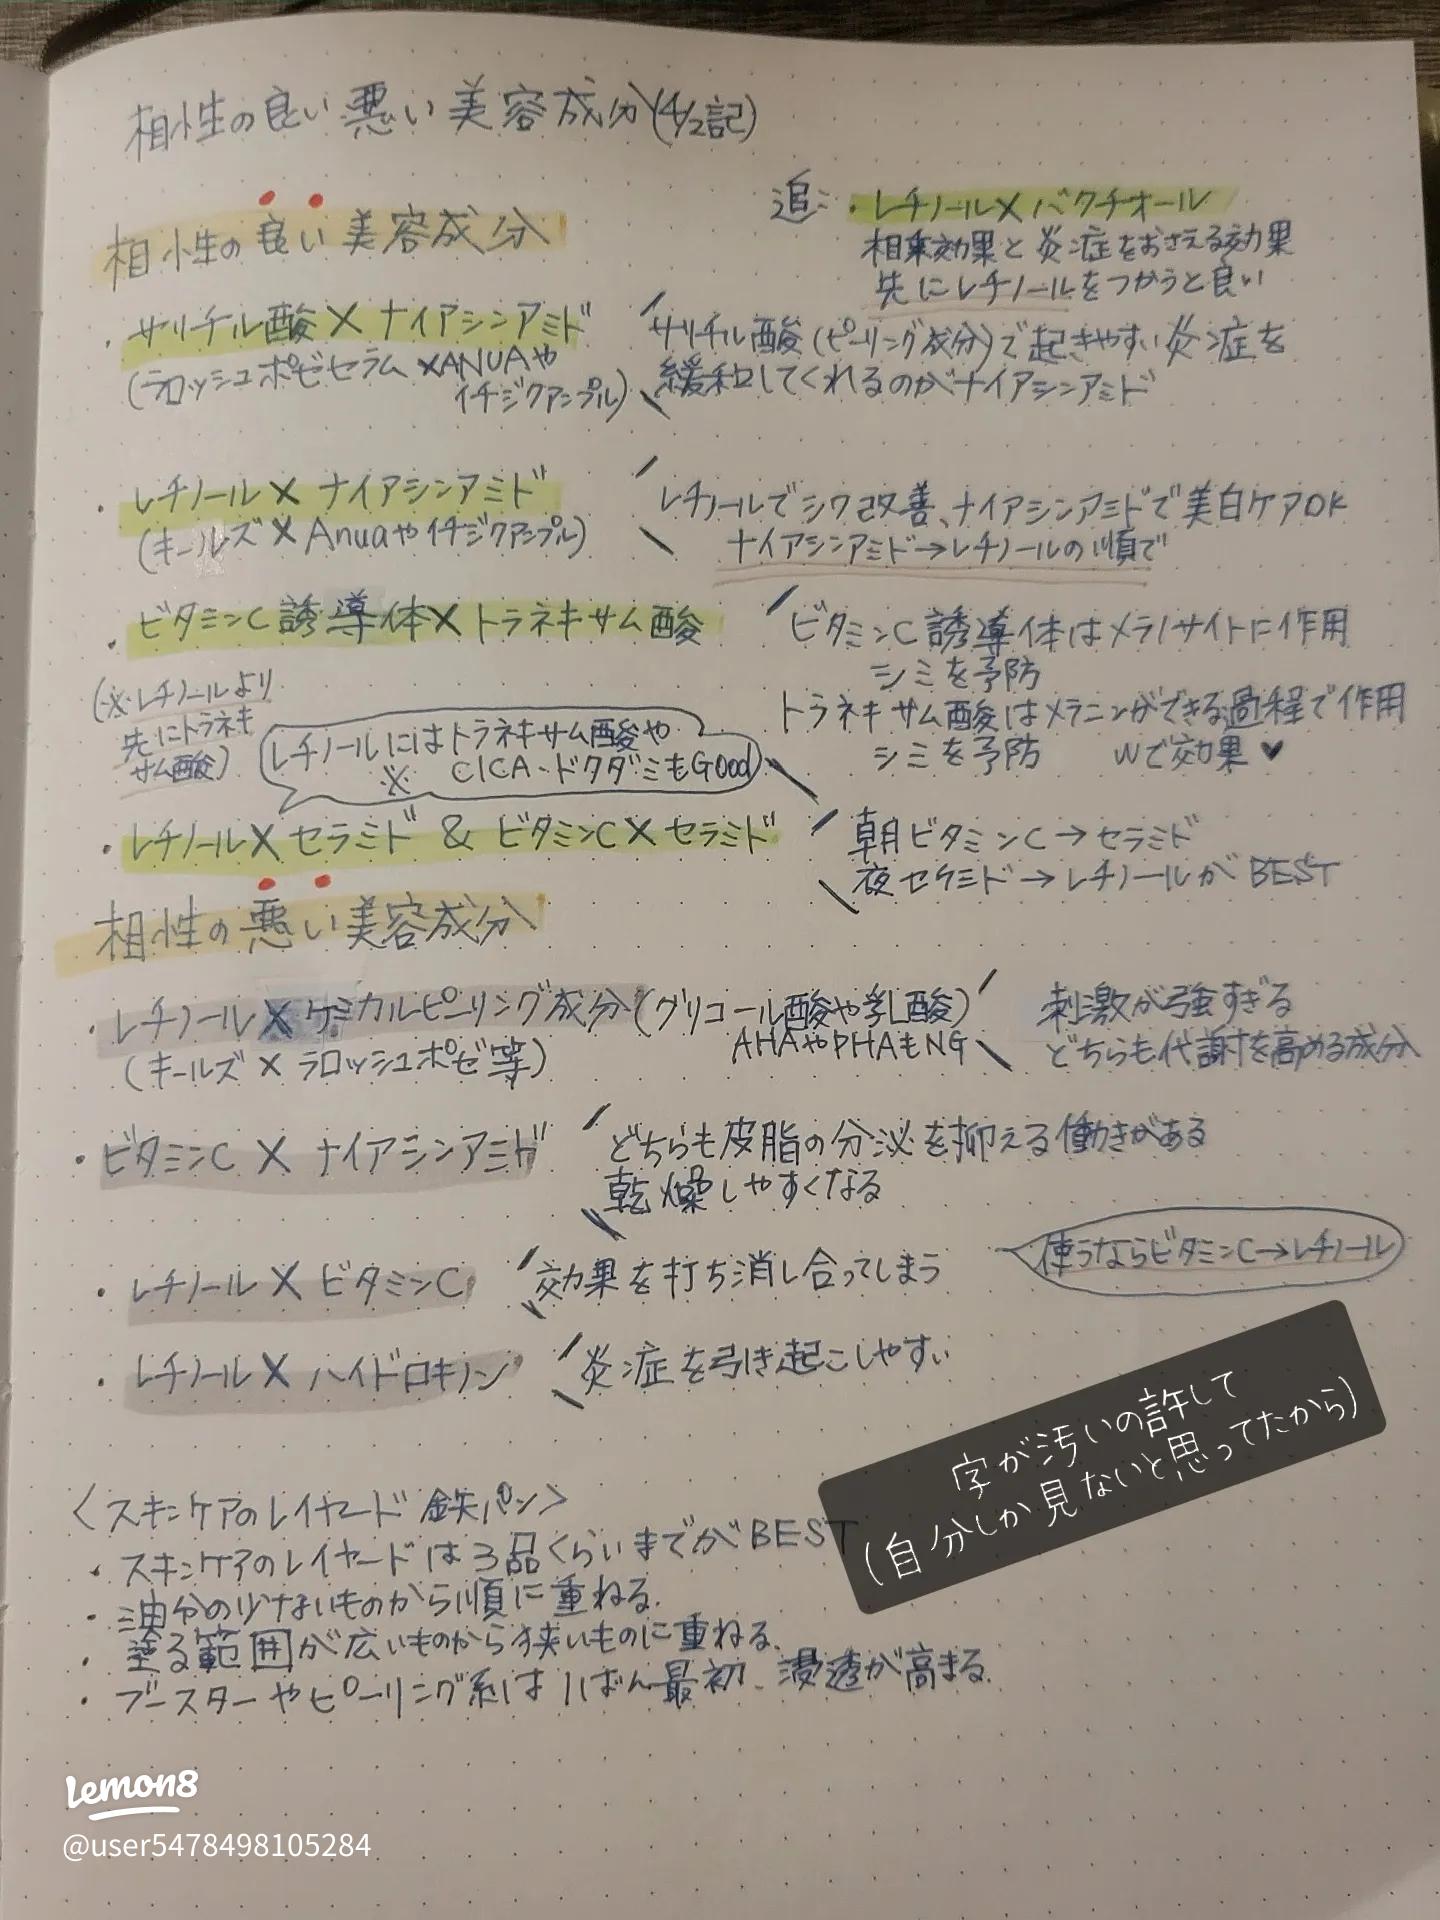 相性の良い悪い美容成分(4/2記)
相性の良い美容成分
追:・レチノール×バクチオール
相乗効果と炎症をおさえる効果
先にレチノールをつかうと良い
・サリチル酸×ナイアシンアミド
(ラロッシュポゼセラム×ANUAや
イチジクアンプル)
サリチル酸(ピーリング成分)で起きやすい炎症を
緩和してくれるのがナイアシンアミド
・レチノール×ナイアシンアミド
(キールズ×Anuaやイチジクアンプル)
レチノールでシワ改善、ナイアシンアミドで美白ケアOK
ナイアシンアミド→レチノールの順で
・ビタミンC誘導体×トラネキサム酸
(※レチノールより
先にトラネキ
サム酸)
ビタミンC誘導体はメラノサイトに作用
シミを予防
トラネキサム酸はメラニンができる過程で作用
シミを予防 Wで効果♥
レチノールにはトラネキサム酸や
※ CICA・ドクダミもGood
・レチノール×セラミド & ビタミンC×セラミド
朝ビタミンC→セラミド
夜セラミド→レチノールがBEST
相性の悪い美容成分
・レチノール×ケミカルピーリング成分(グリコール酸や乳酸)
AHAやPHAもNG
(キールズ×ラロッシュポゼ等)
刺激が強すぎる
どちらも代謝を高める成分
・ビタミンC×ナイアシンアミド
どちらも皮脂の分泌を抑える働きがある
乾燥しやすくなる
・レチノール×ビタミンC
効果を打ち消し合ってしまう
使うならビタミンC→レチノール
・レチノール×ハイドロキノン
炎症を引き起こしやすい
字が汚いの許して
(自分しか見ないと思ってたから)
<スキンケアのレイヤード鉄パン>
・スキンケアのレイヤードは3品くらいまでがBEST
・油分の少ないものから順に重ねる.
・塗る範囲が広いものから狭いものに重ねる.
・ブースターやピーリング系はいちばん最初.浸透が高まる.
Lemon8
@user5478498105284